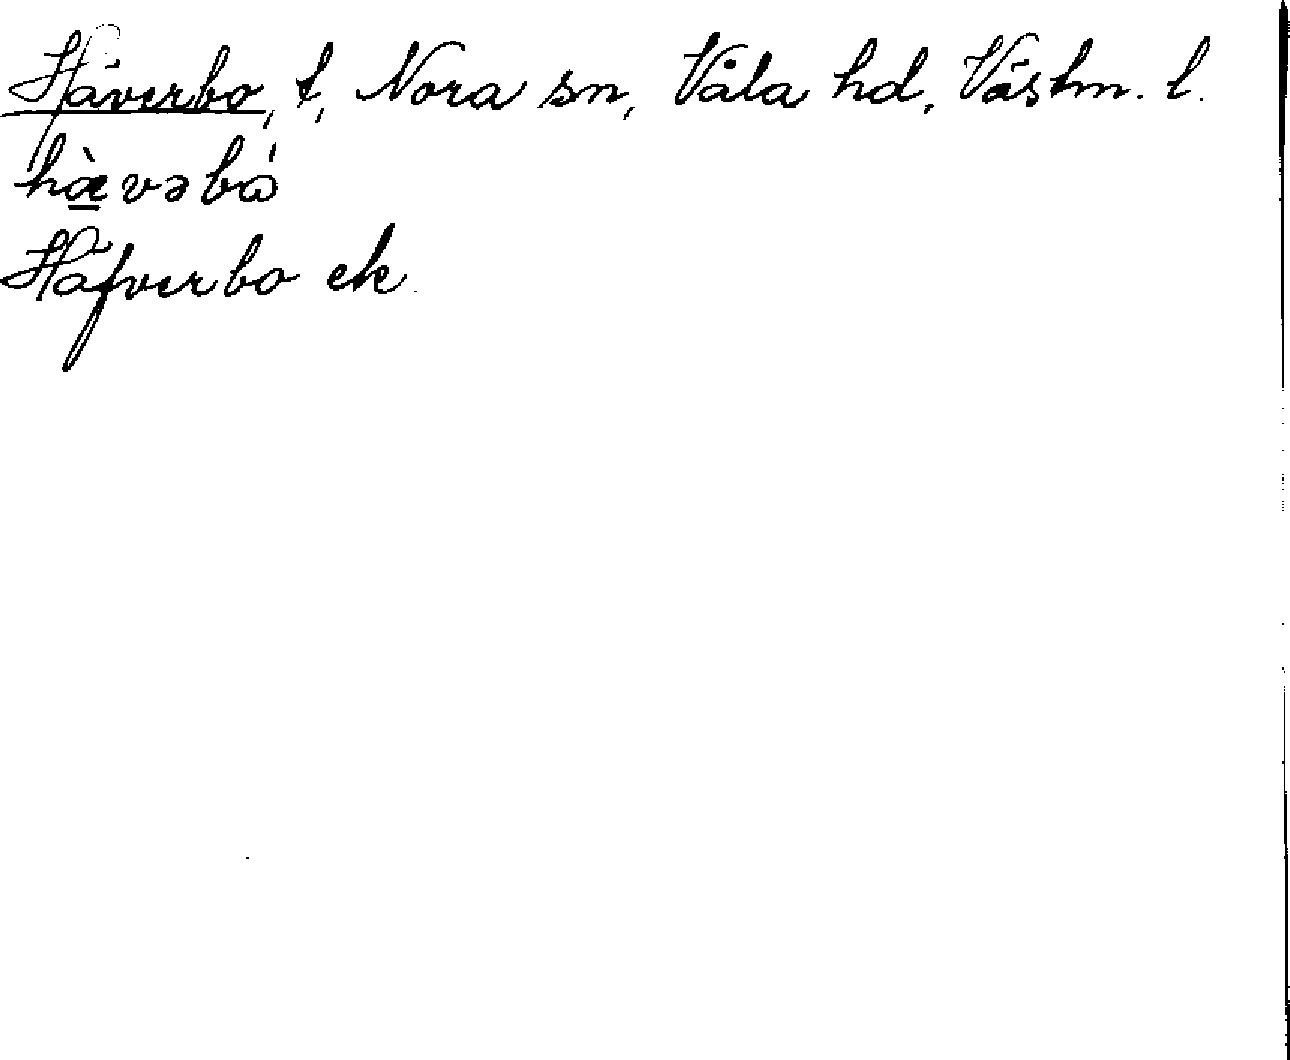 Häverbo, t, Nora sn, Våla hd, Västm. l.
hæ̀vəbó
Häfverbo ek.